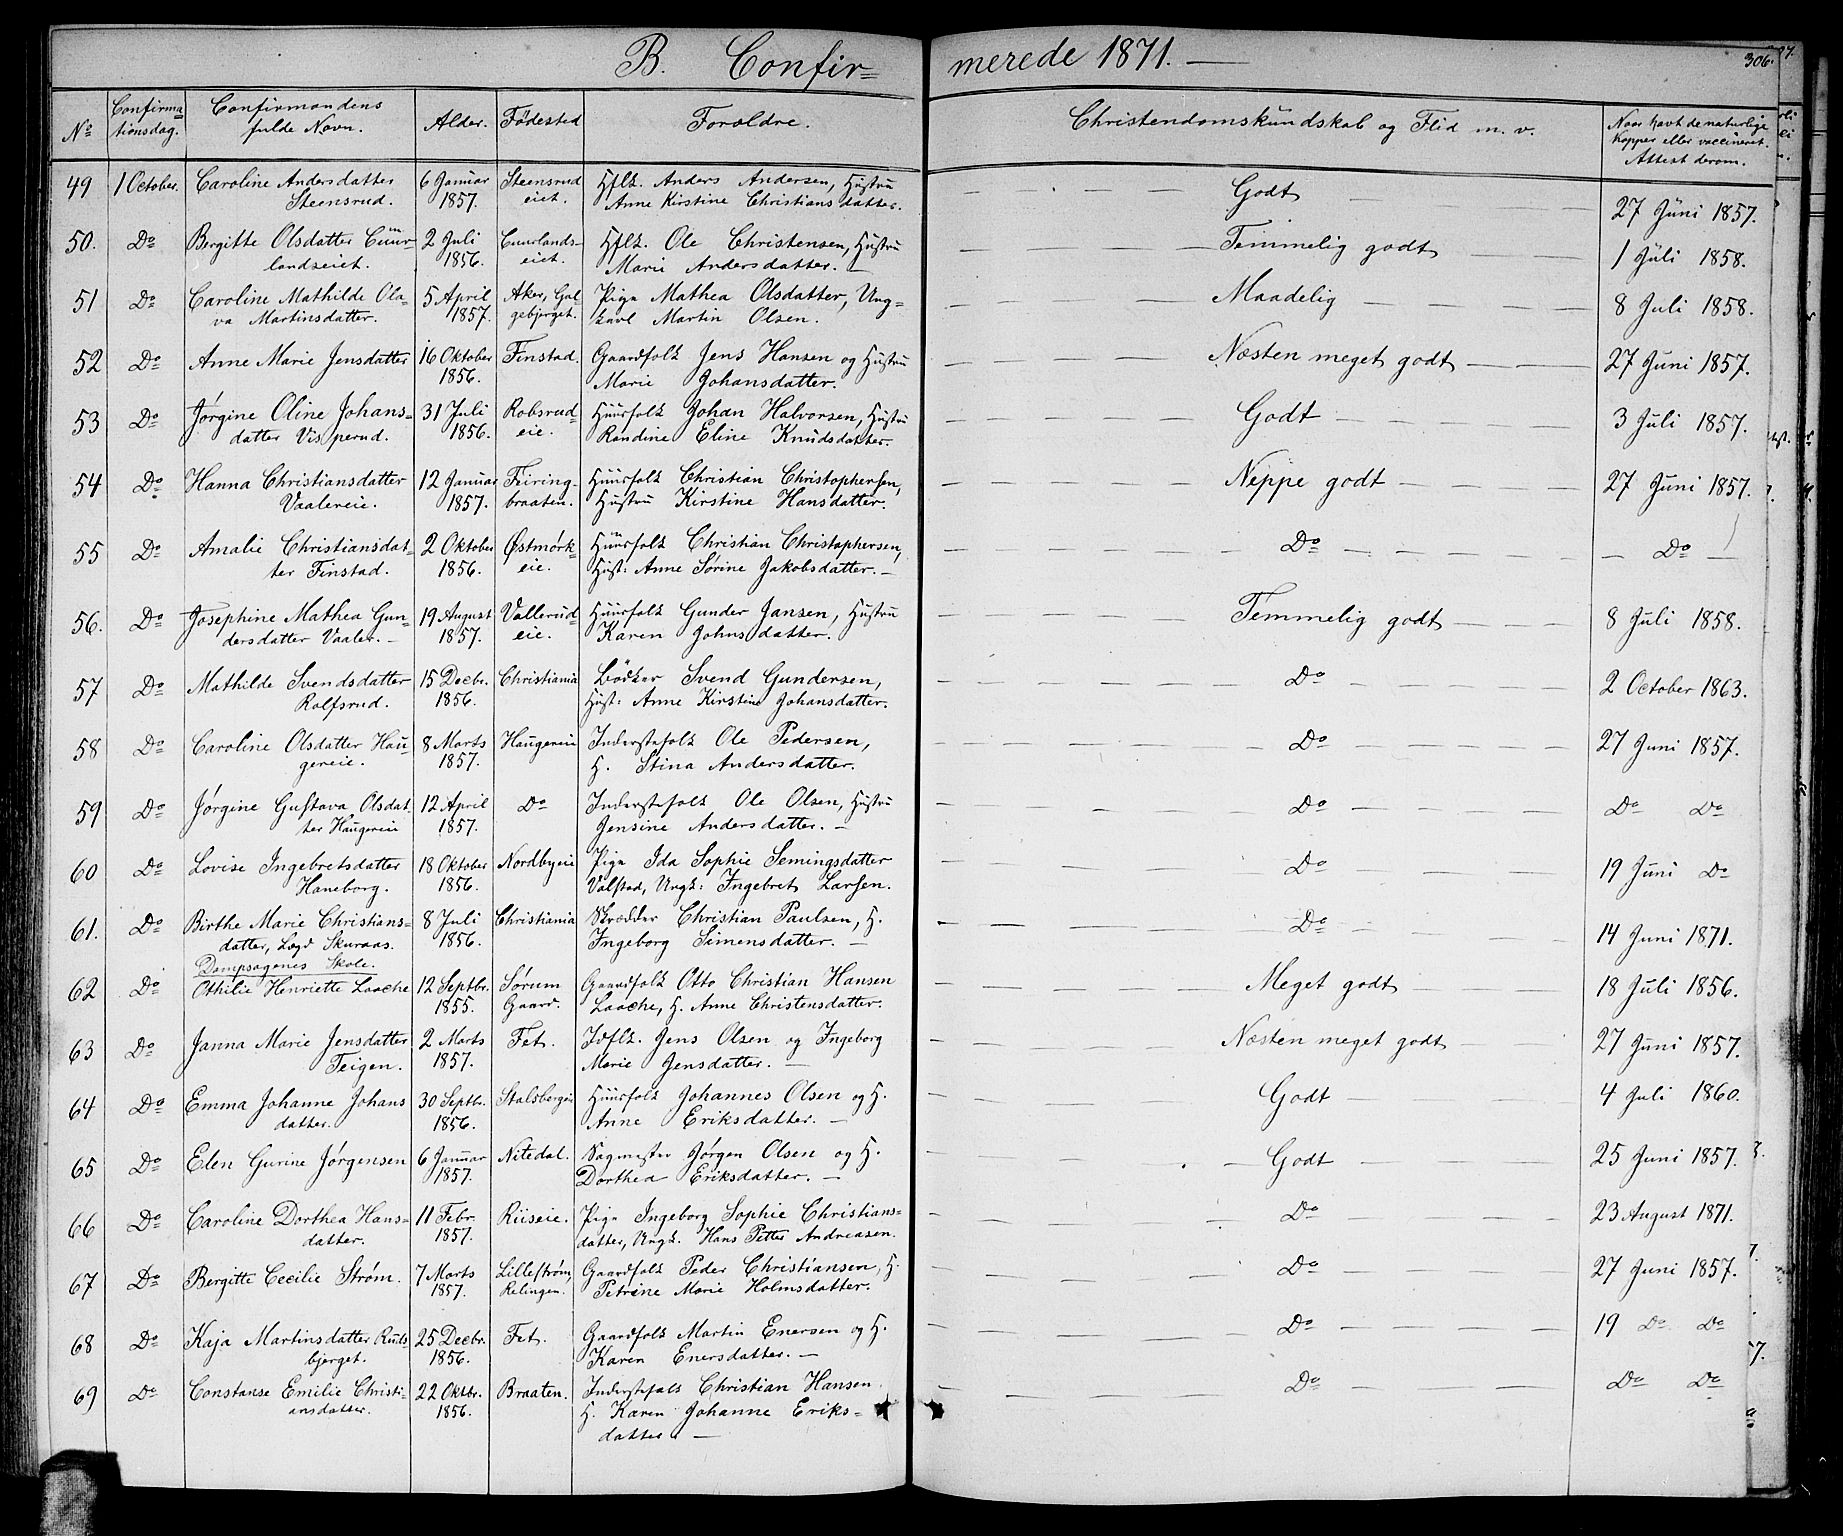 B. Confir= merede 1871. —
306.
№ Confirma= tionsdag. Confirmandens fulde Navn. Alder. Fødested Forældre. Christendomskundskab og Flid m. v. Naar havt de naturlige Kopper eller vaccineret. Attest derom.
49 1 October. Caroline Andersdatter 6 Januar Steensrud Hflk. Anders Andersen, Hustru Godt
Steensrud. 1857. eiet. Anne Kirstine Christiansdatter. 27 Juni 1857.
50. Do Bergitte Olsdatter Cuur 2 Juli Cuurlands= Hflk. Ole Christensen, Hustru Temmelig godt
landseiet. 1856. eiet. Marie Andersdatter. — 1 Juli 1858.
51 Do Caroline Mathilde Ola= 5 April Aker, Gal Pige Mathea Olsdatter, Ung= Maadelig 8 Juli 1858.
va Martinsdatter. 1857. gebjerget. karl Martin Olsen.
52 Do Anne Marie Jensdatter 16 Oktober Finstad. Gaardfolk Jens Hansen og Hustru Næsten meget godt 27 Juni 1857.
1856. Marie Johansdatter.
53 Do Jørgine Oline Johans= 31 Juli Robsrud Huusfolk Johan Halvorsen, Hustru Godt 3 Juli 1857.
datter Visperud. 1856. eie. Randine Eline Knudsdatter.
54 Do Hanna Christiansdatter 12 Januar Feiring= Huusfolk Christian Christophersen, Neppe godt 27 Juni 1857.
Vaalereie. 1857. braaten. Hustru Kirstine Hansdatter.
55 Do Amalie Christiansdat= 2 Oktober Østmørk= Huusfolk Christian Christophersen, Do — Do —
ter Finstad. 1856. eie. Hust: Anne Sørine Jakobsdatter. —
56. Do Josephine Mathea Gun= 19 August Vallerud= Huusfolk Gunder Jansen, Hustru Temmelig godt 8 Juli 1858.
dersdatter Vaaler. — 1857. eie. Karen Johnsdatter.
57 Do Mathilde Svendsdatter 15 Decbr. Christiania Bödker Svend Gundersen, Do 2 October 1863.
Rolfsrud. 1856. Hust: Anne Kirstine Johansdatter.
58 Do Caroline Olsdatter Hau= 8 Marts Haugereie Inderstefolk Ole Pedersen, Do 27 Juni 1857.
gereie. 1857. H. Stina Andersdatter.
59 Do Jørgine Gustava Olsdat= 12 April Do Inderstefolk Ole Olsen, Hustru Do Do Do
ter Haugereie 1857. Jensine Andersdatter. —
60 Do Lovise Ingebretsdatter 18 Oktober Nordbyeie Pige Ida Sophie Semingsdatter Do 19 Juni Do
Haneborg. 1856. Valstad, Ungk: Ingebret Larsen.
61. Do Birthe Marie Christians= 8 Juli Christiania Skrædder Christian Paulsen, H. Do 14 Juni 1871.
datter, Lægd Skuraas. 1856. Ingeborg Simensdatter. —
Dampsagenes Skole.
62 Do Othilie Henriette Laache 12 Septbr. Sørum Gaardfolk Otto Christian Hansen Meget godt 18 Juli 1856.
1855. Gaard. Laache, H. Anne Christensdatter.
63 Do Janna Marie Jensdatter 2 Marts Fet. Idflk. Jens Olsen og Ingeborg Næsten meget godt 27 Juni 1857.
Teigen. 1857. Marie Jensdatter. —
64 Do Emma Johanne Johans 30 Septbr. Stalsbergeie Huusfolk Johannes Olsen og H. Godt 4 Juli 1860.
datter. 1856. Anne Eriksdatter. —
65 Do Elen Gurine Jørgensen 6 Januar Nitedal. Sagmester Jørgen Olsen og H. Godt 25 Juni 1857.
1857. Dorthea Eriksdatter. —
66 Do Caroline Dorthea Hans= 11 Febr. Riiseie. Pige Ingeborg Sophie Christians= Do 23 August 1871.
datter. 1857. datter, Ungk. Hans Petter Andreasen.
67 Do Bergitte Cecilie Strøm. 7 Marts Lillestrøm, Gaardfolk Peder Christiansen, H. Do 27 Juni 1857.
1857. Relingen. Petrine Marie Holmsdatter.
68 Do Kaja Martinsdatter Ruds 25 Decbr. Fet. Gaardfolk Martin Enersen og H. Do 19 Do Do
bjerget. 1856. Karen Enersdatter. —
69 Do Constanse Emilie Christi= 22 Oktbr. Braaten. Inderstefolk Christian Hansen Do Do Do
ansdatter. 1856. H. Karen Johanne Eriks=
datter. —